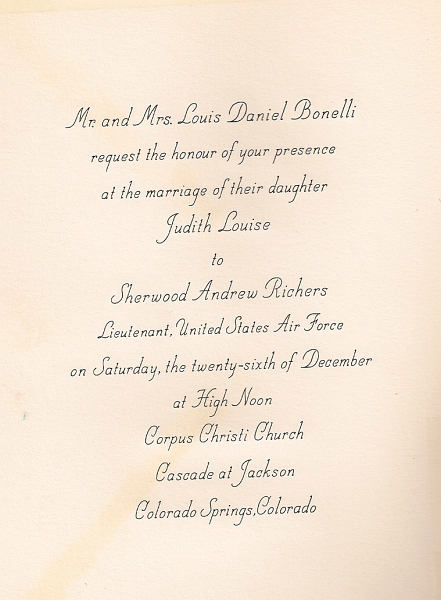 Mr. and Mrs. Louis Daniel Bonelli
request the honour of your presence
at the marriage of their daughter
Judith Louise
to
Sherwood Andrew Richers
Lieutenant, United States Air Force
on Saturday, the twenty-sixth of December
at High Noon
Corpus Christi Church
Cascade at Jackson
Colorado Springs, Colorado